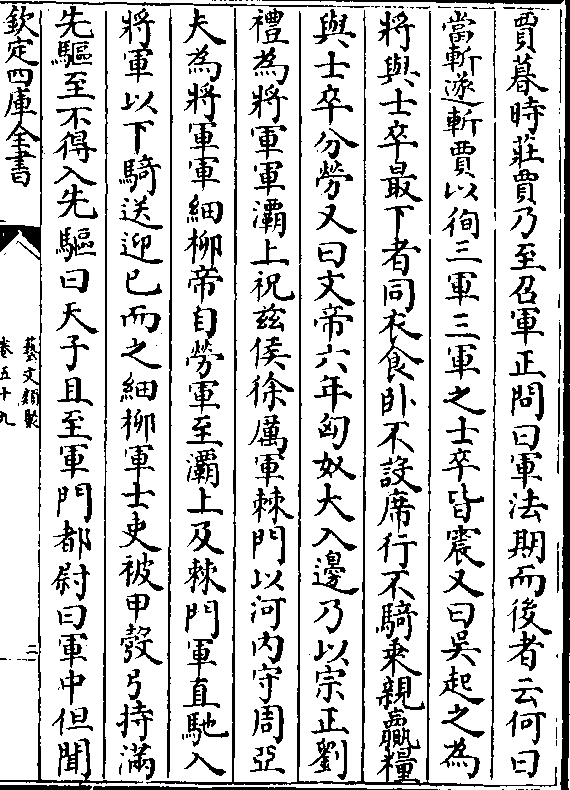 賈暮時莊賈乃至召軍正問曰軍法期而後者云何曰
當斬遂斬賈以徇三軍三軍之士卒皆震又曰吳起之為
將與士卒最下者同衣食卧不設席行不騎乘親贏糧
與士卒分勞又曰文帝六年匈奴大入邊乃以宗正劉
禮為將軍軍灞上祝兹侯徐厲軍棘門以河内守周亞
夫為將軍軍細柳帝自勞軍至灞上及棘門軍直馳入
將軍以下騎送迎已而之細柳軍士吏被甲彀弓持滿
先驅至不得入先驅曰天子且至軍門都尉曰軍中但聞
欽定四庫全書
藝文類聚
卷五十九
三